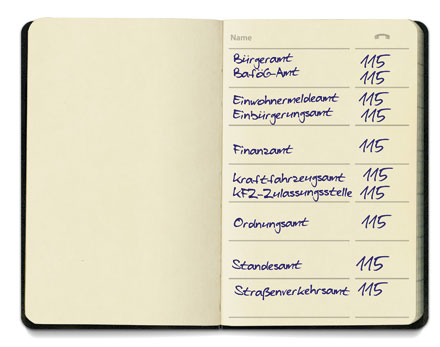 Name
Bürgeramt 115
BaföG-Amt 115
Einwohnermeldeamt 115
Einbürgerungsamt 115
Finanzamt 115
Kraftfahrzeugsamt 115
KFZ-Zulassungsstelle 115
Ordnungsamt 115
Standesamt 115
Straßenverkehrsamt 115